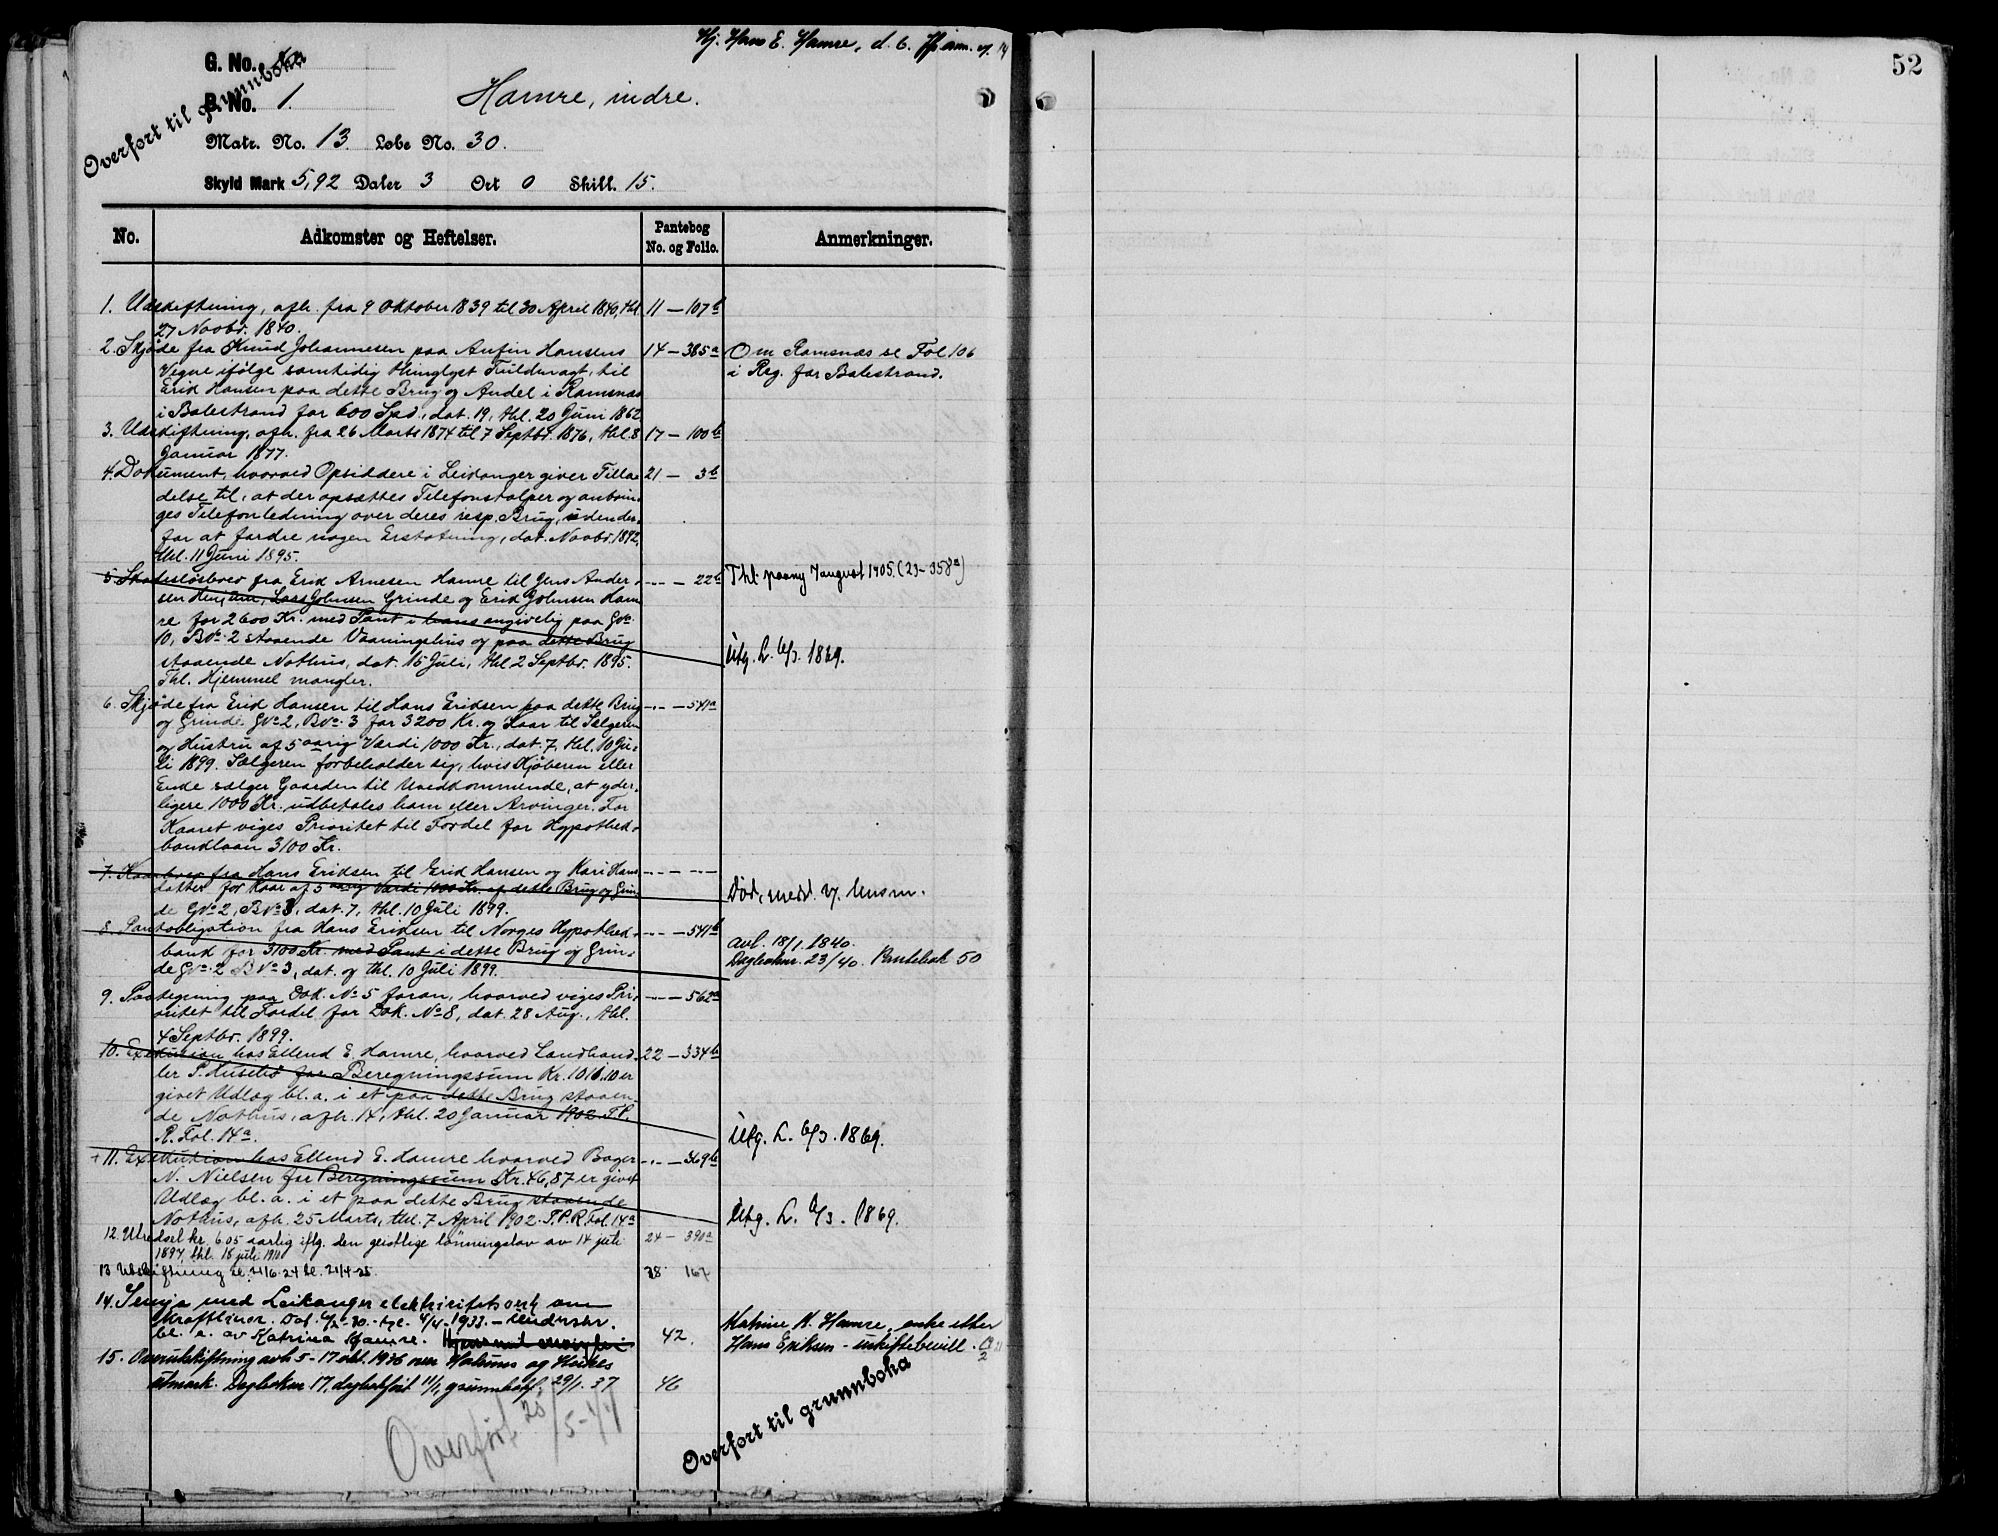 Hj. Hans E. Hamre, d. 6.
G. No.
B. No. 1.
Hamre, indre.
Overført til grunnboka
Matr. No. 13. Løbe No. 30.
Skyld Mark 5,92 Daler 3 Ort 0 Skill. 15.
No. Adkomster og Heftelser. Pantebog No. og Folio. Anmerkninger.
1. Udskiftning, afh. fra 9 Oktober 1839 til 30 April 1840, thl. 11 — 107b
27 Novbr. 1840.
2. Skjøde fra Knud Johannesen paa Anfin Hansens 14 — 385a Om Ramsnæs se Fol 106
Vegne ifølge samtidig thinglyst Fuldmagt, til i Reg. for Balestrand.
Erik Hansen paa dette Brug og Andel i Ramsnæs
i Balestrand for 600 Spd., dat. 19, thl. 20 Juni 1862
3. Udskiftning, afh. fra 26 Marts 1874 til 7 Septbr. 1876, thl. 8 17 — 100b
Januar 1877.
4. Dokument, hvorved Opsiddere i Leikanger giver Tilla- 21 — 3b
delse til, at der opsættes Telefonstolper og anbrin-
ges Telefonledning over deres resp. Brug, uden der-
for at fordre nogen Erstatning, dat. Novbr. 1892,
thl. 11 Juni 1895.
5. Skadesløsbrev fra Erik Arnesen Hamre til Jens Ander- -"- — 22b Thl. paany 7 august 1905. (23-358a)
sen Henjum, Lars Johnsen Grinde og Erik Johnsen Ham-
re for 2600 Kr. med Pant i hans angivelig paa GNo.
10, BNo. 2 staaende Vaaningshus og paa dette Brug
staaende Nothus, dat. 15 Juli, thl. 2 Septbr. 1895. Utg. L. 6/3. 1869.
Thl. Hjemmel mangler.
6. Skjøde fra Erik Hansen til Hans Eriksen paa dette Brug -"- — 541a
og Grinde GNo 2, BNo. 3 for 3200 Kr. og Kaar til Sælgeren
og Hustru af 5 aarig Værdi 1000 Kr., dat. 7, thl. 10 Ju-
li 1899. Sælgeren forbeholder sig, hvis Kjøberen eller
Enke sælger Gaarden til Uvedkommende, at yder-
ligere 1000 Kr. udbetales ham eller Arvinger. For
Kaaret viges Prioritet til Fordel for Hypothek-
banklaan 3100 Kr.
7. Kaarbrev fra Hans Eriksen til Erik Hansen og Kari Hans- -"- -"-
datter for Kaar af 5 aarig Værdi 1000 Kr. af dette Brug og Grin- Død, medd. v/ lensm.
de GNo 2, BNo 3, dat. 7, thl. 10 Juli 1899.
8. Pantobligation fra Hans Eriksen til Norges Hypothek- -"- — 541b
bank for 3100 Kr. med Pant i dette Brug og Grin- avl. 18/1. 1840.
de GNo. 2 BNo 3, dat. og thl. 10 Juli 1899. Dagboknr. 23/40. Pantebok 50
9. Paategning paa Dok. No 5 foran, hvorved viges Pri- -"- — 562a
oritet til Fordel for Dok. No 8, dat. 28 Aug., thl.
4 Septbr. 1899.
10. Exekution hos Ellend E. Hamre, hvorved Landhand- 22 — 334b
ler P. Husebø for Beregningssum Kr. 1016.10 er
givet Udlæg bl. a. i et paa dette Brug staaen-
de Nothus, afh. 14, thl. 20 Januar 1902 T.P. Utg. L. 6/3. 1869.
R. Fol. 14a.
11. Exekution hos Ellend E. Hamre hvorved Bager -"- — 369b
N. Nielsen for Beregningssum Kr. 46,87 er givet
Udlæg bl. a. i et paa dette Brug staaende
Nothus, afh. 25 Marts, thl. 7 April 1902. T.P.R. Fol. 14a Utg. L. 6/3. 1869.
12. Utredsel kr. 6.05 aarlig iflg. den geistlige lønningslov av 14 juli 24 — 390a
1897, thl. 18 juli 1910
13 Utskiftning sl. 21/6-24 tl. 21/4-25. 38 167
14. Semja med Leikanger elektrisitetsverk om
kraftlinor. Dat. -30. tgl. 4/4-1933. - Underskr. Katrine H. Hamre, enke etter
bl. a. av Katrina Hamre. 42. Hans Eriksen - uskiftebevill.
15. Overutskiftning avh. 5-17 okt. 1936 over og
utmark. Dagboknr 17, dagbokført 11/1, grunnbokf. 29/1. 37 46
Overført 25/5-44
Overført til grunnboka
52